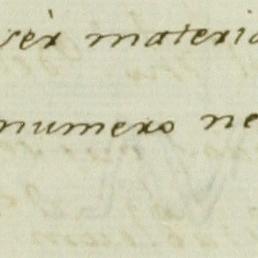 materia
numero ne